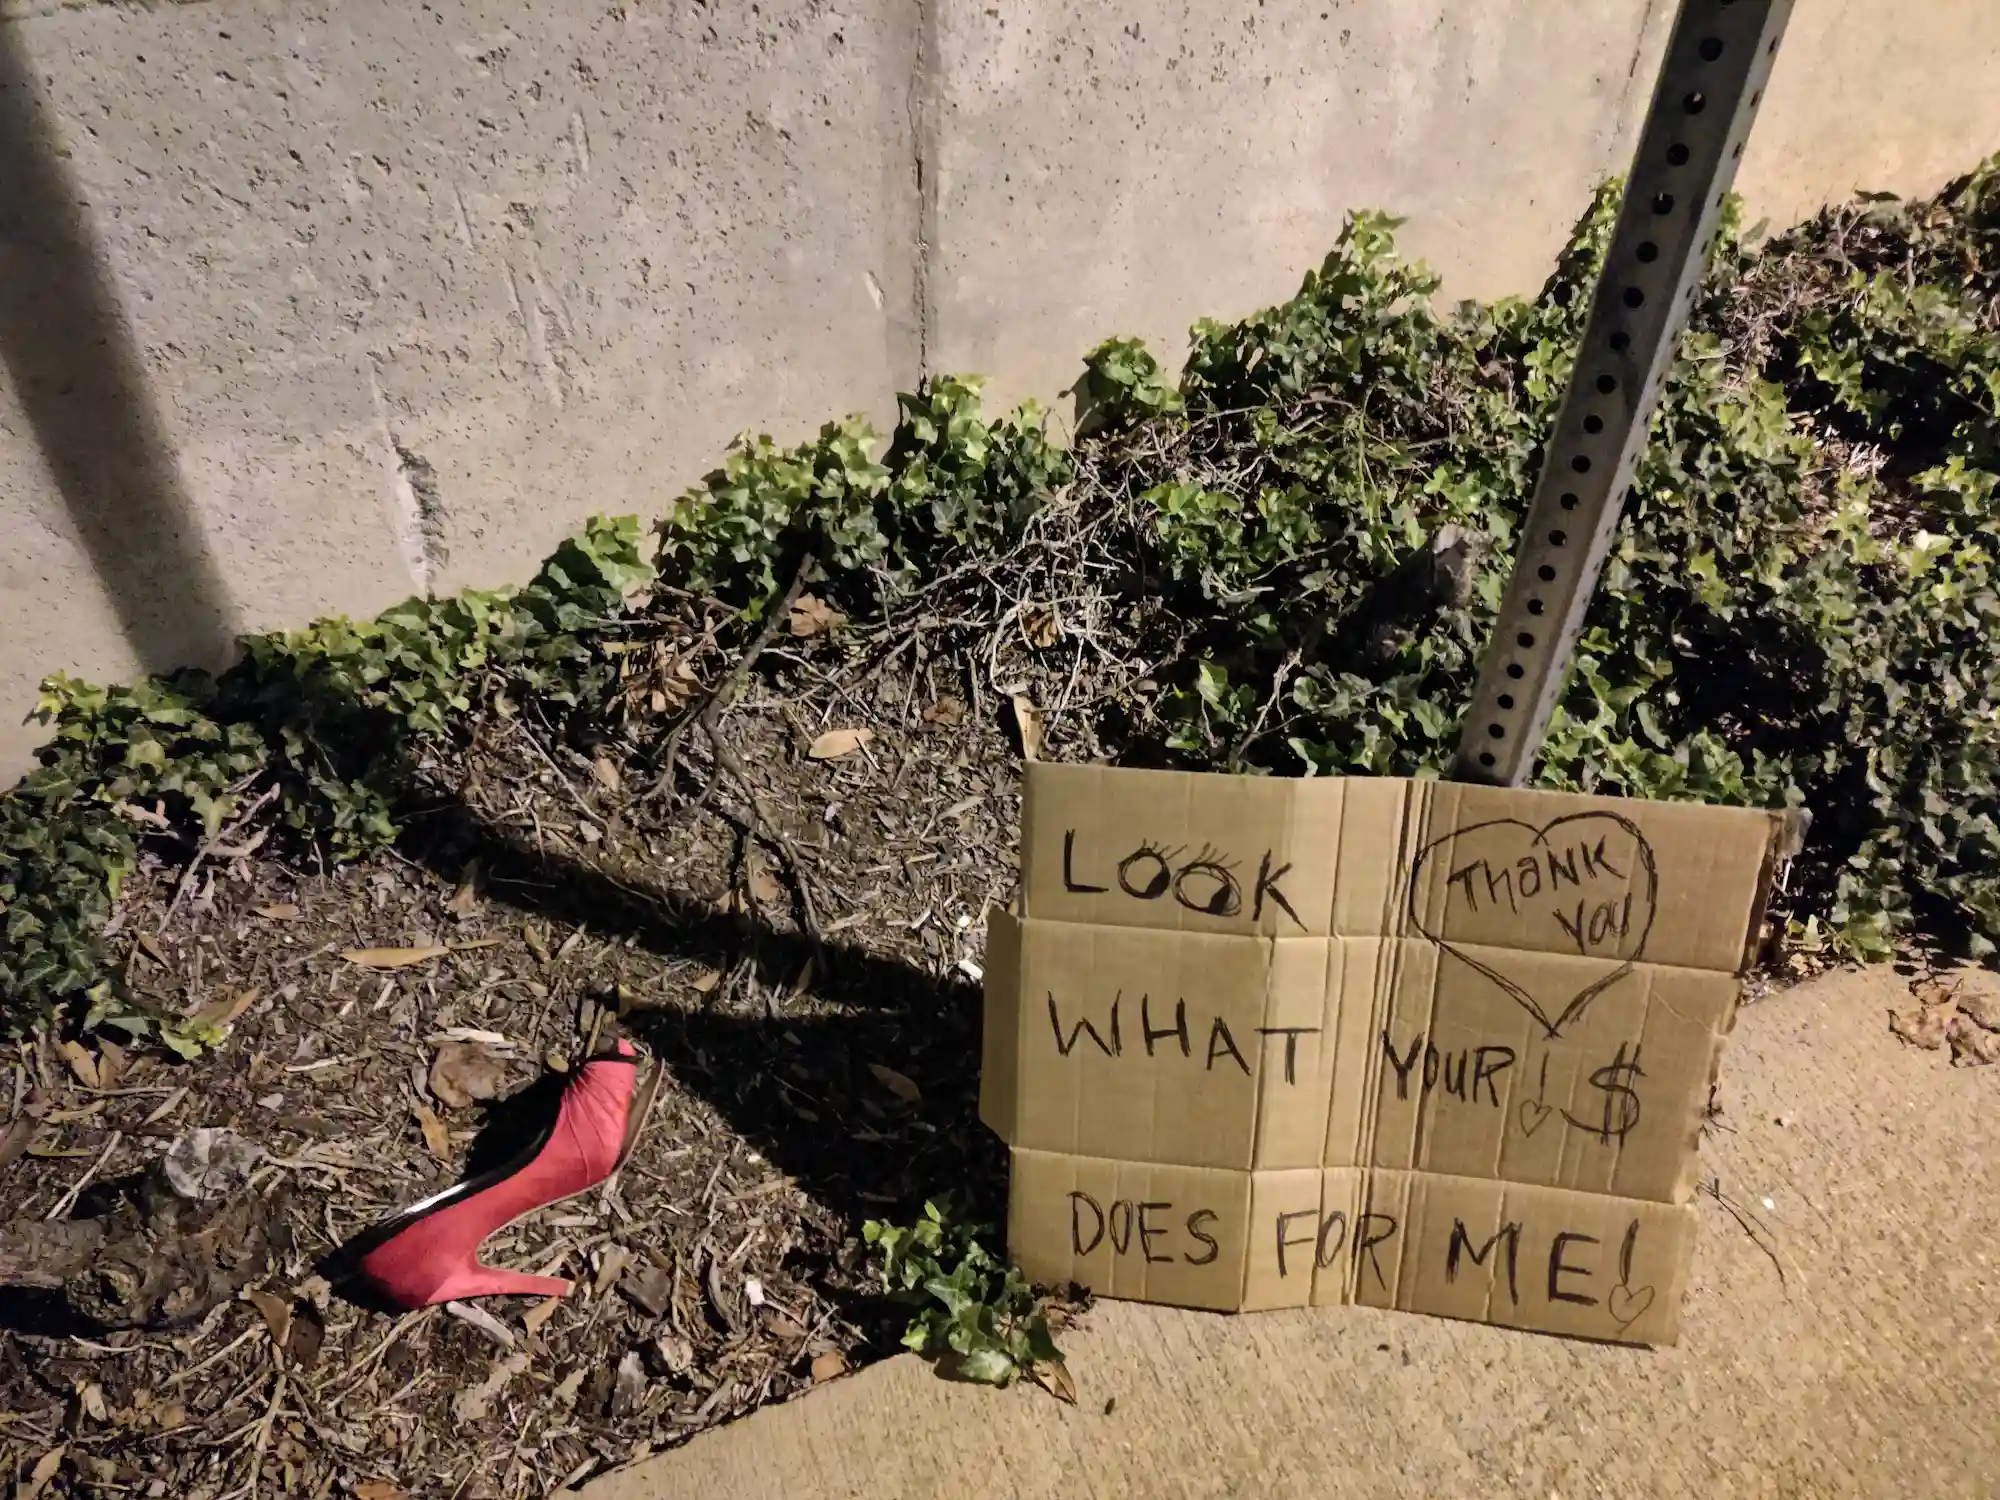 LOOK
THANK
YOU
WHAT YOUR! $
DOES FOR ME!